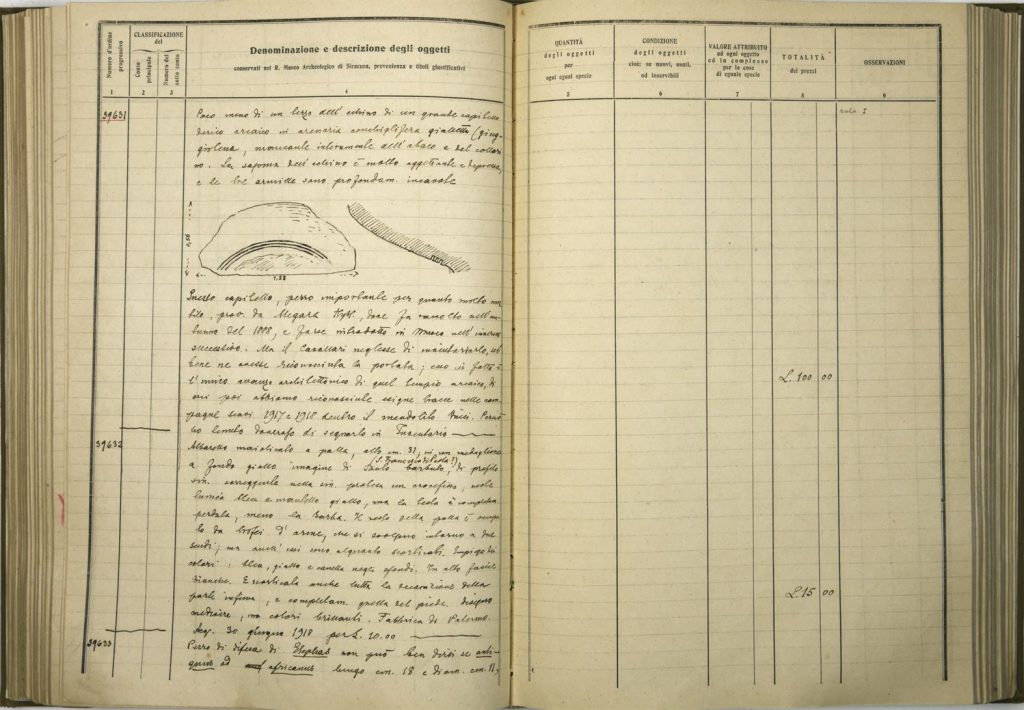 Numero d'ordine progressivo
CLASSIFICAZIONE
del
Conto principale
Numero del sotto conto
Denominazione e descrizione degli oggetti
conservati nel R. Museo Archeologico di Siracusa, provenienza e titoli giustificativi
1 2 3 4
39631
Poco meno di un terzo dell'echino di un grande capitello
dorico arcaico in arenaria conchiglifera gialletta (giug-
giolena, mancante interamente dell'abaco e del collari
no. La sagoma dell'echino è molto aggettante e depressa,
e le tre armille sono profondam. incavate
0,56
1,28
Questo capitello, pezzo importante per quanto molto mu
tilo, prov. da Megara Hybl., dove fu raccolto nell'au-
tunno del 1888, e forse introdotto in Museo nell'inverno
successivo. Ma il Cavallari neglesse di inventariarlo, seb
bene ne avesse riconosciuta la portata; esso in fatti è
l'unico avanzo architettonico di quel tempio arcaico, di
cui poi abbiamo riconosciute esigue tracce nelle cam
pagne scavi 1917 e 1918 dentro il
ho tenuto doveroso di segnarlo in Inventario
39632
Albarello maiolicato a palla, alto cm. 31, in un medaglione
a fondo giallo imagine di Santo barbuto, di profilo
(S. Francesco di Paola?)
sin. sorreggente nella sin. protesa un crocefisso, veste
tunica bleu e mantello giallo, ma la testa è completam.
perduta, meno la barba. Il resto della palla è occupa
to da trofei d'arme, che si svolgono intorno a due
scudi; ma anch'essi sono alquanto scorticati. Impiego dei
colori: bleu, giallo e canella negli sfondi. In alto fascie
bianche. È scorticata anche tutta la decorazione della
parte infima, e completam. quella del piede. Disegno
mediocre, ma colori brillanti. Fabbrica di Palermo.
Acq. 30 giugno 1918 per L. 20.00
39633
Pezzo di difesa di Elephas non può ben dirsi se anti-
quus od africanus lungo cm. 18 e diam. cm. 11,
QUANTITÀ
degli oggetti
per
ogni egual specie
5
CONDIZIONE
degli oggetti
cioè: se nuovi, usati,
od inservibili
6
VALORE ATTRIBUITO
ad ogni oggetto
od in complesso
per le cose
di eguale specie
7
TOTALITÀ
dei prezzi
8
OSSERVAZIONI
9
sala I
L. 100 00
L. 15 00